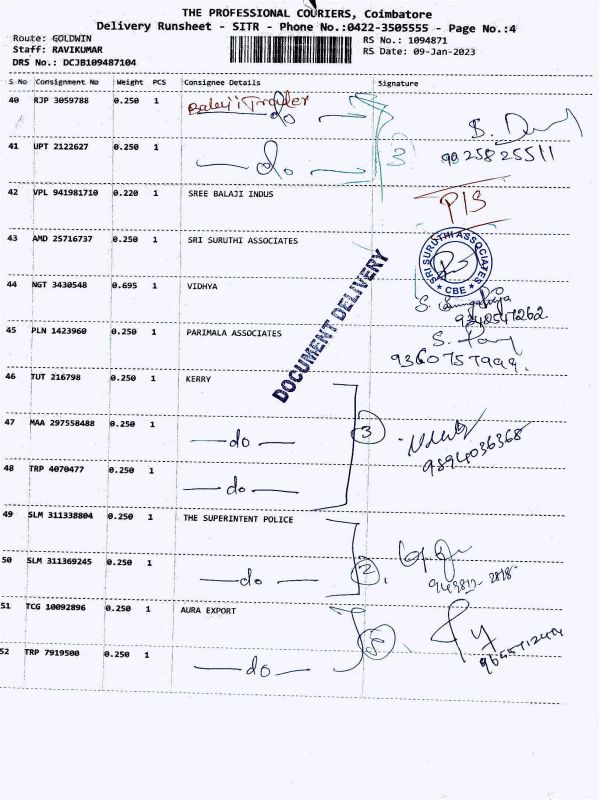 THE PROFESSIONAL COURIERS, Coimbatore
Delivery Runsheet - SITR - Phone No.:0422-3505555 - Page No.:4
Route: GOLDWIN
RS No.: 1094871
Staff: RAVIKUMAR
RS Date: 09-Jan-2023
DRS No.: DCJB109487104
S No Consignment No Weight PCS Consignee Details Signature
40 RJP 3059788 0.250 1 Balaji Trader
do
41 UPT 2122627 0.250 1 do 3
9925825511
42 VPL 941981710 0.220 1 SREE BALAJI INDUS P/S
43 AMD 25716737 0.250 1 SRI SURUTHI ASSOCIATES
SRI SURUTHI ASSOCIATES
CBE
44 NGT 3430548 0.695 1 VIDHYA
9342547262
DOCUMENT DELIVERY
45 PLN 1423960 0.250 1 PARIMALA ASSOCIATES
9360757999
46 TUT 216798 0.250 1 KERRY
47 MAA 297558488 0.250 1 do 3
9894036368
48 TRP 4070477 0.250 1 do
49 SLM 311338804 0.250 1 THE SUPERINTENT POLICE
50 SLM 311369245 0.250 1 do 2
51 TCG 10092896 0.250 1 AURA EXPORT
52 TRP 7919500 0.250 1 do